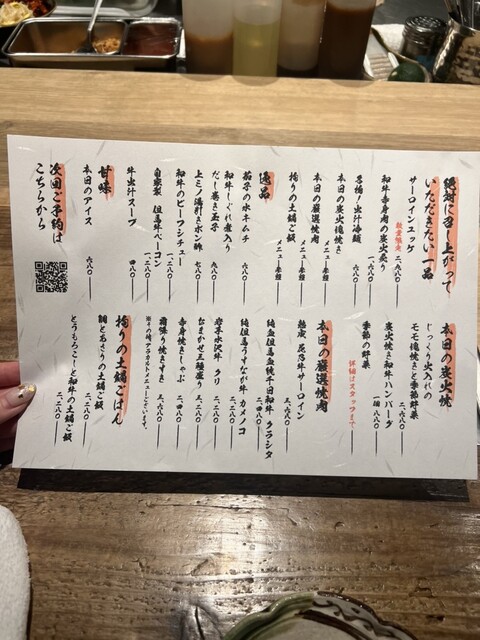 絶対に召し上がって
いただきたい一品
サーロインユッケ
数量限定 二、九八〇
和牛赤身肉の炭火炙り
一、六八〇
名物！出汁冷麺
六八〇
本日の炭火塊焼き
メニュー参照
本日の厳選焼肉
メニュー参照
拘りの土鍋ご飯
メニュー参照
逸品
茄子の水キムチ
六八〇
和牛しぐれ煮入り
だし巻き玉子
九八〇
上ミノ湯引きポン酢
七八〇
和牛のビーフシチュー
一、二八〇
自家製 但馬牛ベーコン
一、二八〇
牛出汁スープ
四八〇
甘味
本日のアイス
六八〇
次回ご予約は
こちらから
本日の炭火焼
じっくり火入れの
モモ塊焼きと季節野菜
二、六八〇
炭火焼き和牛ハンバーグ
一個 八八〇
季節の野菜
詳細はスタッフまで
本日の厳選焼肉
熟成 尾乃牛サーロイン
三、六八〇
純血但馬血統千日和牛 クラシタ
二、四八〇
純但馬うすなが牛 カメノコ
二、二八〇
岩手水沢牛 クリ
二、二八〇
おまかせ三種盛り
三、二八〇
赤身焼きしゃぶ
二、四八〇
霜降り焼きすき
三、六八〇
※その他アラカルトメニューございます。
拘りの土鍋ごはん
鯛とあさりの土鍋ご飯
二、二八〇
とうもろこしと和牛の土鍋ご飯
三、二八〇